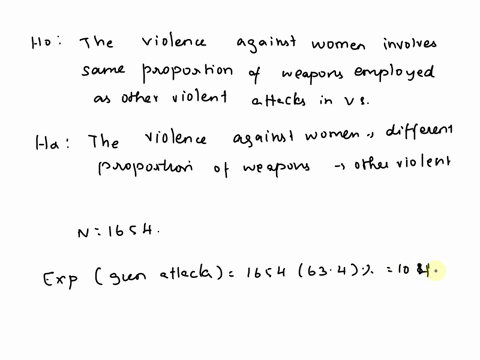 Ho: The violence against women involves
same proportion of weapons employed
as other violent attacks in US.
Ha: The violence against women, different
proportion of weapons → other violent
N=1654.
Exp (gun attacks) = 1654 (63.4)% = 10